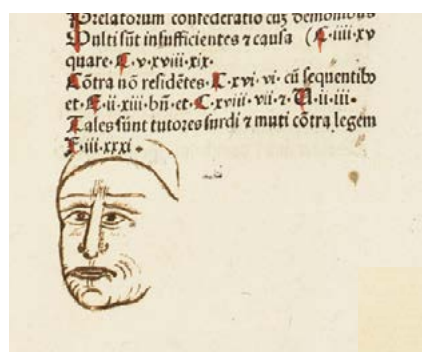 Prelatorum confederatio cuȝ demonibus
Multi sūt insufficientes ⁊ causa (C·iiii·xv
quare·C·v·xviii·xix·
Cōtra nō residētes·C·xvi·vi·cū sequentibꝰ
et·E·ii·xiii·bn̄·et·C·xviii·vii·⁊·U·ii·iii·
Tales sunt tutores surdi ⁊ muti cōtra legem
F·iii·xxxi·